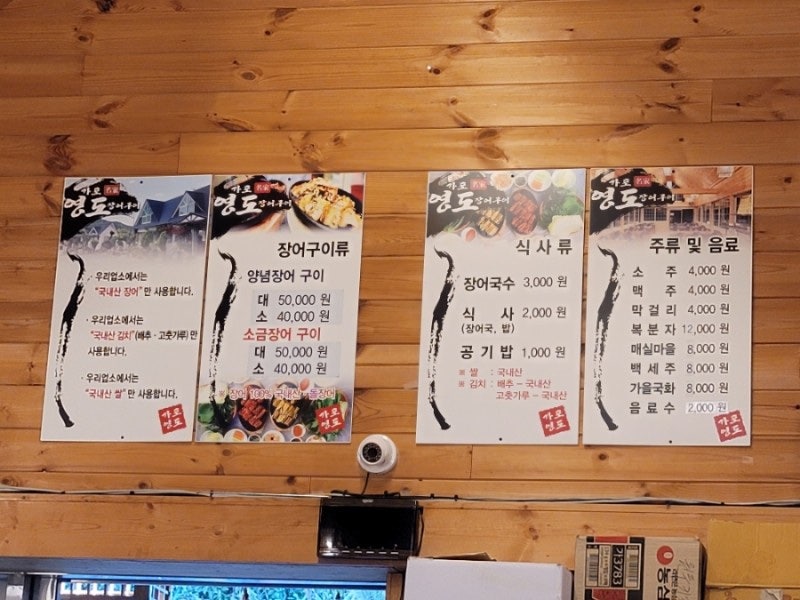 가로
名家
영도 장어구이
· 우리업소에서는
"국내산 장어"만 사용합니다.
· 우리업소에서는
"국내산 김치"(배추 · 고춧가루)만
사용합니다.
· 우리업소에서는
"국내산 쌀"만 사용합니다.
가로
영도
가로
名家
영도 장어구이
장어구이류
양념장어 구이
대 50,000 원
소 40,000 원
소금장어 구이
대 50,000 원
소 40,000 원
※ 장어 100% 국내산 - 돌장어
가로
영도
가로
名家
영도 장어구이
식 사 류
장어국수 3,000 원
식 사 2,000 원
(장어국, 밥)
공 기 밥 1,000 원
※ 쌀 : 국내산
※ 김치 : 배추 - 국내산
고춧가루 - 국내산
가로
영도
가로
名家
영도 장어구이
주류 및 음료
소 주 4,000 원
맥 주 4,000 원
막 걸 리 4,000 원
복 분 자 12,000 원
매실마을 8,000 원
백 세 주 8,000 원
가을국화 8,000 원
음 료 수 2,000 원
가로
영도
가13783
농심